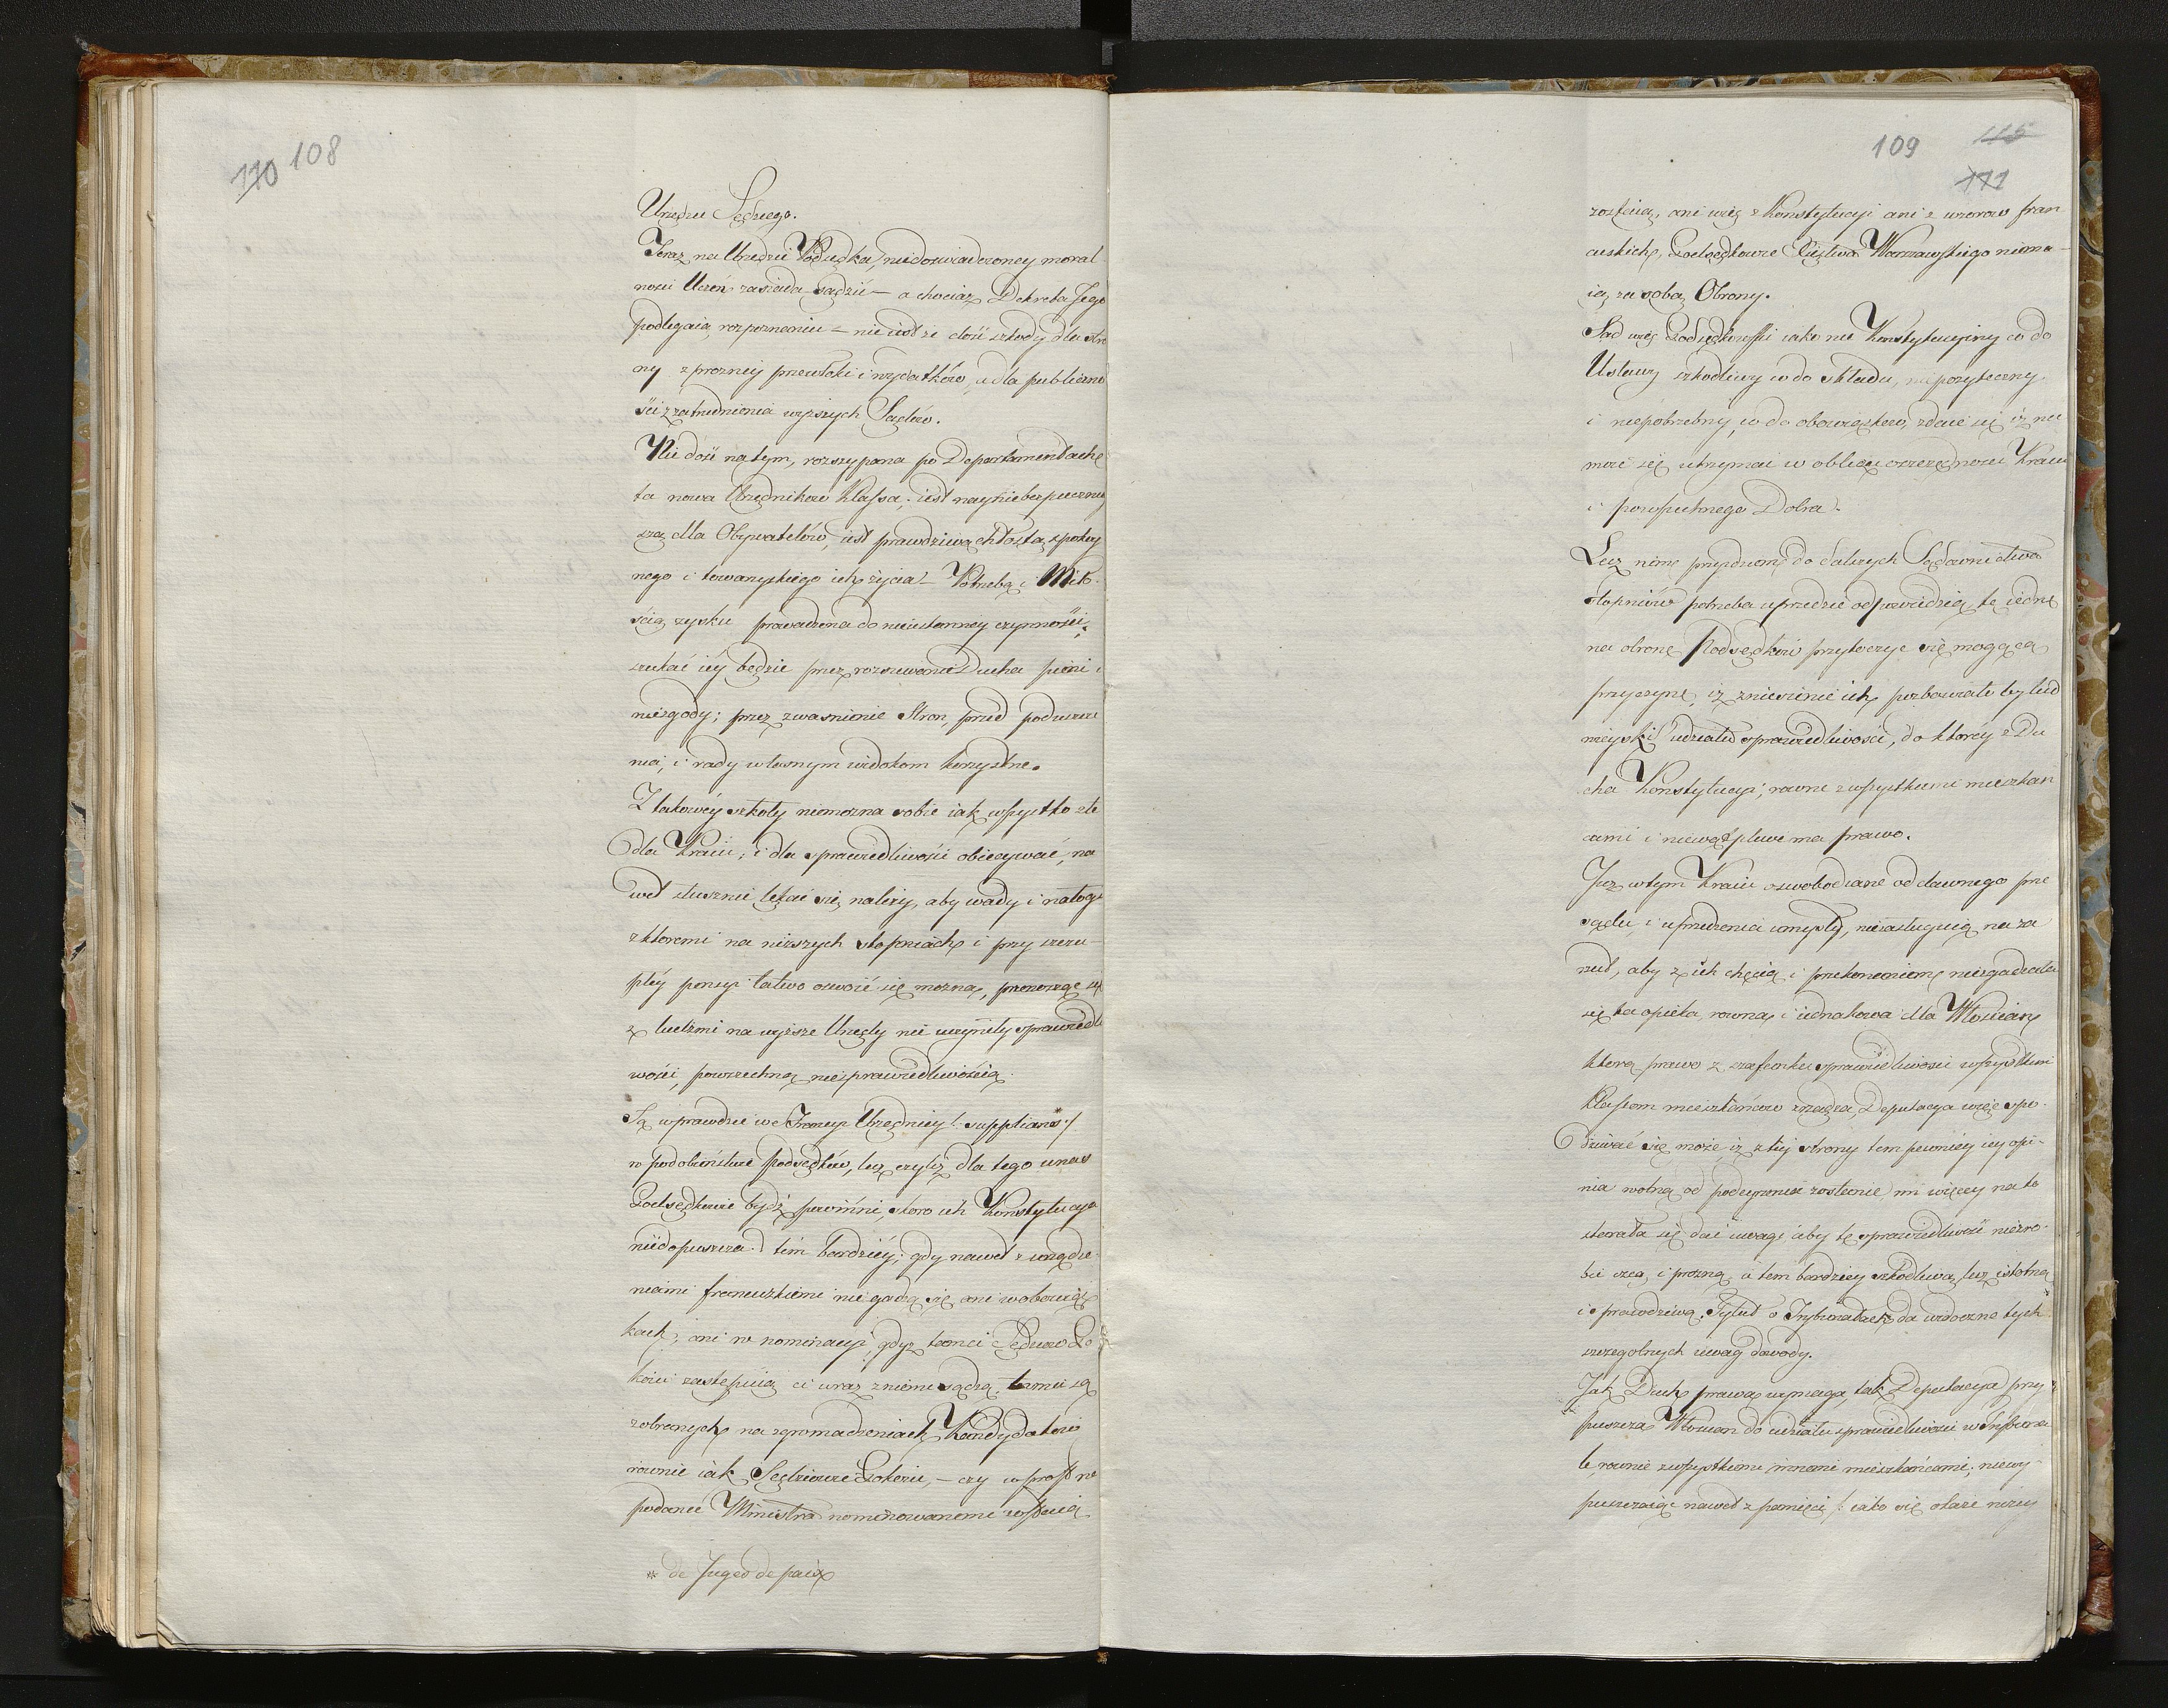 110 108
Urzędu Sędziego.
Teraz na Urzędzie Podsędka, niedoświadczoney moral
ności Uczeń zasiada sądzić — a chociaż Dekreta Jego
podlegaią rozpoznaniu — nie iest że dość szkody dla stro
ny z prozney przewłoki i wydatków, a dla publiczno
ści z zatrudnienia wyższych Sądów.
Nie dość na tym, rozsypana po Departamentach
ta nowa Urzędników Klassa, iest nayniebezpieczniey
szą dla Obywatelów, iest prawdziwą chłostą spokoy
nego i towarzyskiego ich życia — Potrzebą i Miło
ścią zysku prowadzona do nieustanney czynności;
szukać iéy będzie przez rozsiewanie Ducha pieni i
niezgody; przez zwasnienie Stron, przed poduszcze
nia, i rady własnym widokom korzystne.
Z takowéy szkoły niemozna sobie iak wszystko złe
dla Kraiu, i dla sprawiedliwości obiecywać, na
wet słusznie lękać się należy, aby wady i nałogi
z któremi na niższych stopniach i przy szczu
płéy pensyi łatwo oswoić się można, przenosząc się
z ludźmi na wyższe Urzędy nie uczyniły sprawiedli
wości, powszechną niesprawiedliwością.
Są wprawdzie we Francyi Urzędnicy /: supplians* :/
w podobieństwie Podsędków, lecz czyliż dla tego u nas
Podsędkowie bydź powinni, skoro ich Konstytucya
niedopuszcza? tém bardziéy, gdy nawet z urządze
niami francuzkiemi nie gadzą się ani w obowiąz
kach, ani w nominacyi, gdyż tamci Sędziów Po
koiu zastępuią ci wraz z niemi sądzą, tamci są
z obranych na zgromadzeniach Kandydatów
równie iak Sędziowie Pokoiu, — czy wprost na
podanie Ministra nominowanemi zostaią
* de Juges de paix
109 115
111
zostaią, ani więc z Konstytucyi ani z wzorów fran
cuskich, Podsędkowie Xięstwa Warszawskiego niema
ią za sobą Obrony.
Sąd więc Podsędkowski iako nie Konstytucyiny co do
Ustawy szkodliwy co do składu, niepożyteczny
i niepotrzebny co do obowiązków, zdaie się iż nie
może się utrzymać w obliczu oszczędności Kraiu
i powszechnego Dobra.
Lecz nim przydziemy do dalszych Sądownictwa
stopniów potrzeba uprzedzić odpowiedzią tę iedną
na obronę Podsędków przytoczyć się mogącą
przyczynę, iż zniesienie ich pozbawiałoby lud
wieyski udziału sprawiedliwości, do któréy z Du
cha Konstytucyi, równe z wszystkiemi mieszkań
cami i niewątpliwe ma prawo.
Już w tym Kraiu oswobodzone od dawnego prze
sądu i uprzedzenia umysły, niezasługuią na za
rzut, aby z ich chęcią i przekonaniem niezgadzała
się ta opieka, równa i iednakowa dla Włościan
którą prawo z szafunku sprawiedliwości wszystkim
Klassom mieszkańców urządza, Deputacya więc spo
dziewać się może, iż z téy strony tem pewniéy iey opi
nia wolną od podeyrzenia zostanie im więcéy na to
starała się dać uwagę aby tę sprawiedliwość niezro
bić czczą, i prózną, a tem bardziey szkodliwą, lecz istotną
i prawdziwą. Tytuł o Trybunałach da widoczne tych
szczególnych uwag dowody.
Jak Duch prawa wymaga, tak Deputacya przy
puszcza Włościan do udziału sprawiedliwości w Trybuna
le, równie z wszystkiemi innemi mieszkańcami, niewy
puszczaiąc nawet z pamięci /: iako się okaże niżey